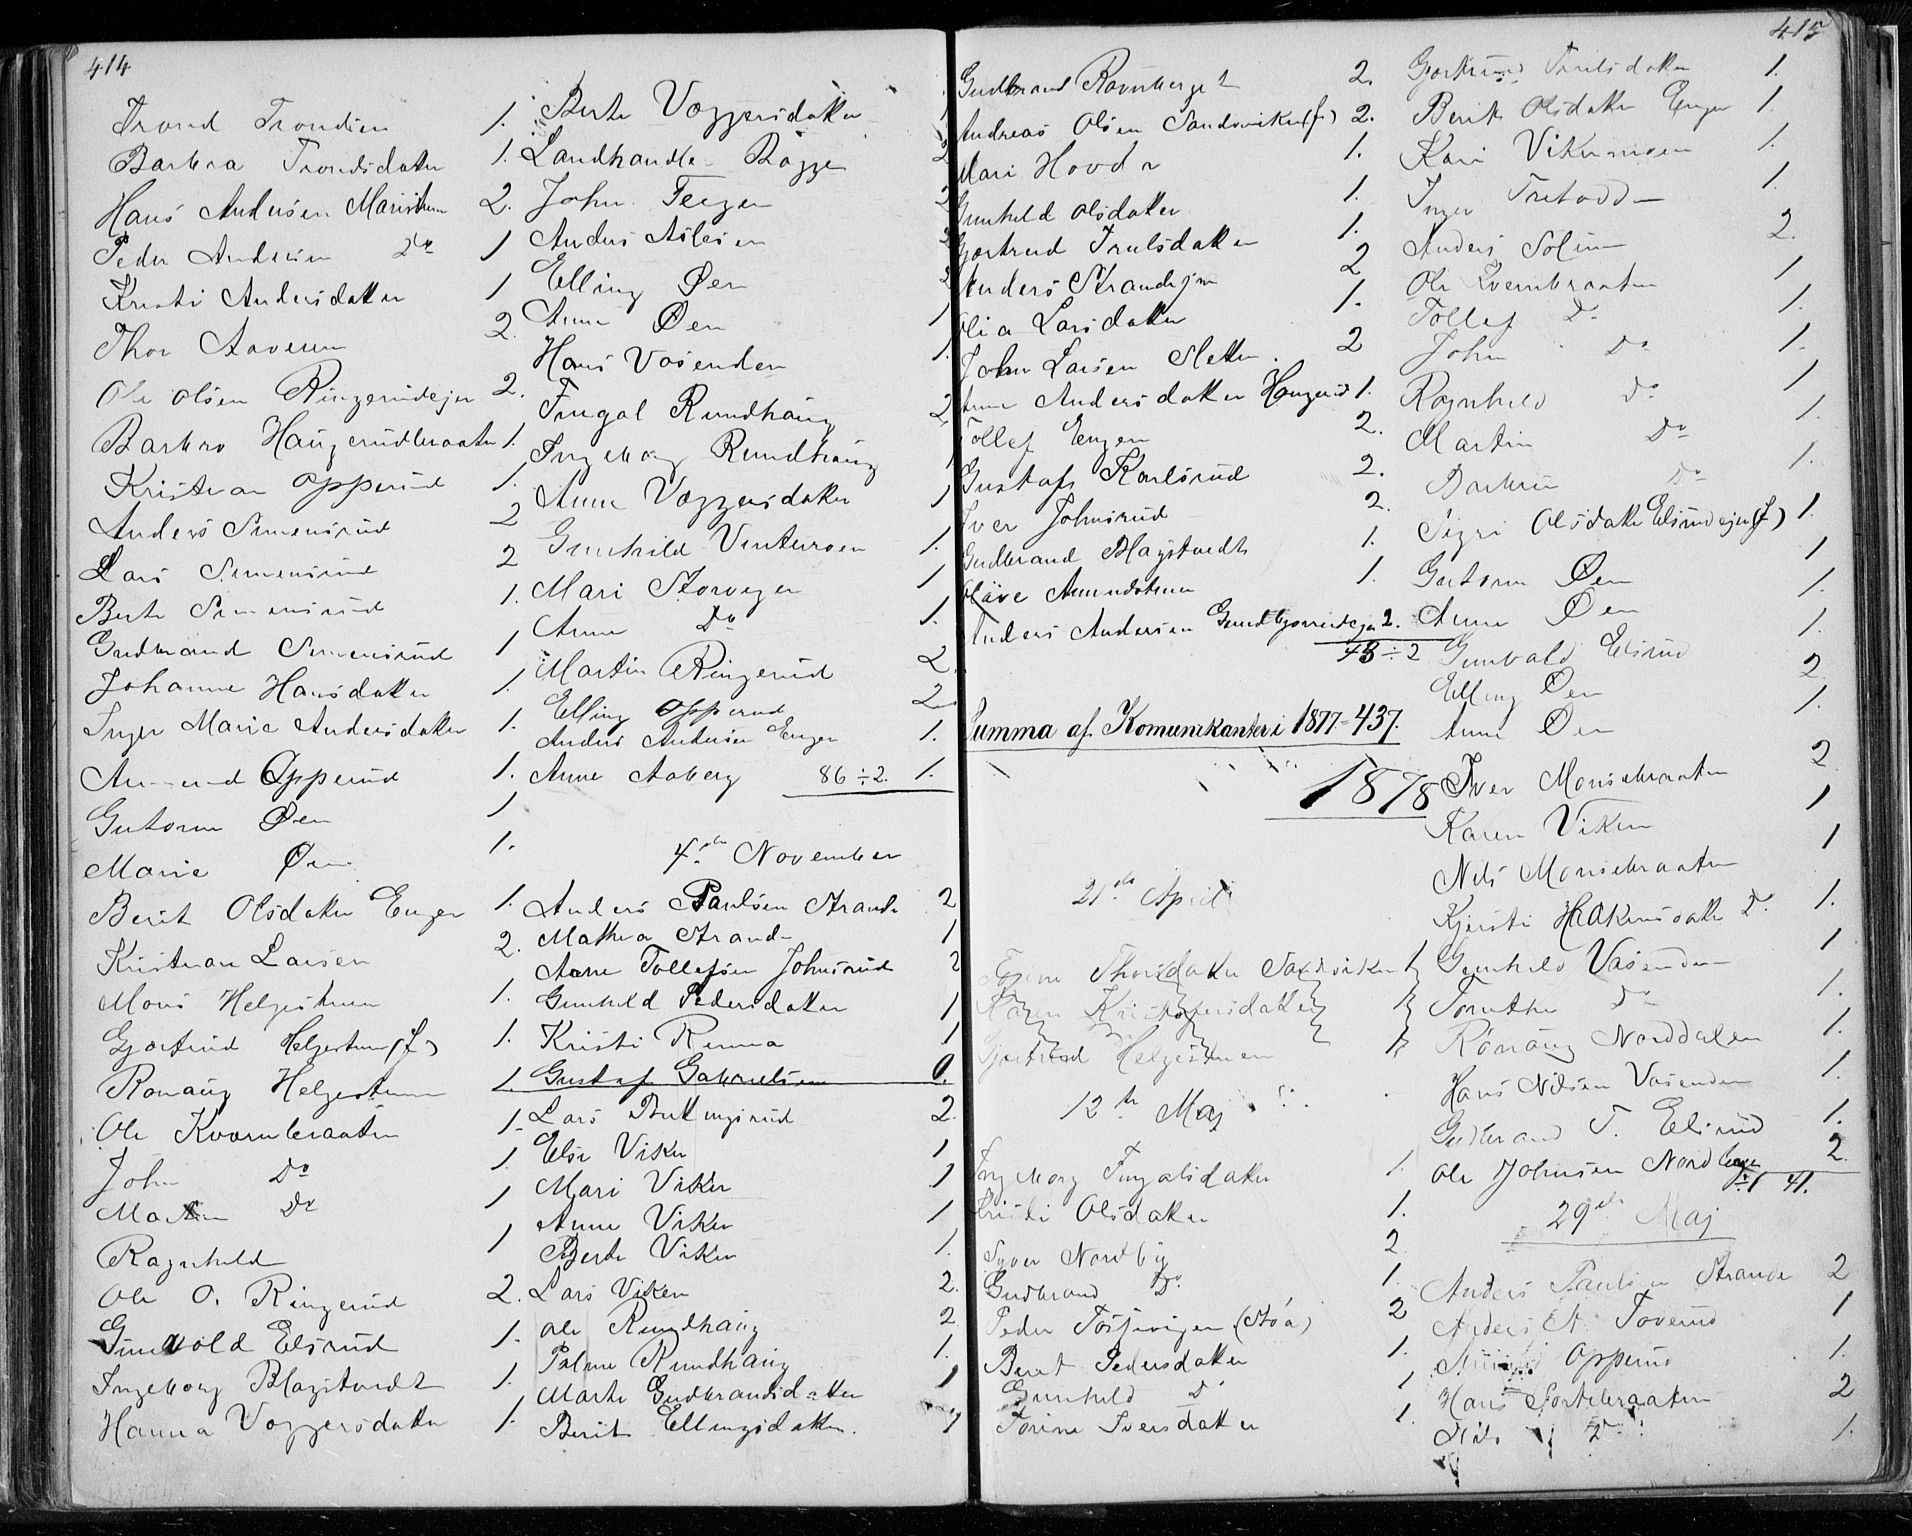 414
Trond Trondsen 1.
Barbra Trondsdatter 1.
Hans Andersen Maristuen 2.
Peder Andersen Do 1
Kristi Andersdatter 1
Thor Aaveren 2.
Ole Olsen Ringerudejer 2.
Barbro Haugerudbraaten 1.
Kristian Opperud 1.
Anders Simensrud 2
Lars Simensrud 2
Berte Simensrud 1.
Gudbrand Simensrud 1
Johanne Hansdatter 1.
Inger Marie Andersdatter 1.
Amund Opperud 1.
Gutorm Øen 1
Marie Øen 1.
Berit Olsdatter Enger 1.
Kristian Larsen 2.
Mons Helgestuen 1.
Gjertrud Helgestuen (f.) 1.
Ronaug Helgestuen 1.
Ole Kvernbraaten 1.
John Do 1
Martin Do 1
Ragnhild 1
Ole O. Ringerud 2.
Gunvold Elsrud 1.
Ingeborg Blagstvedt 1.
Hanna Voggersdatter 1.
Berte Voggersdatter 1
Landhandler Bagge 2
John Teigen 2
Anders Aslesen 2
Elling Øen 2
Anne Øen 1
Hans Vasenden 1.
Fingal Rundhaug 2
Ingeborg Rundhaug 1
Anne Voggersdatter 1
Gunhild Vintermoen 1.
Mari Storvigen 1
Anne Do 1.
Martin Ringerud 2.
Elling Opperud 2.
Anders Andersen Enger 1.
Anne Aaberg 86 ÷ 2. 1.
4de November
Anders Paulsen Strande 2
Mathea Strande 1
Arne Tollefsen Johnsrud 2
Gunhild Pedersdatter 1
Kristi Renna 1
Gustaf Gabrielsen 0.
Lars Buttingsrud 2.
Else Viker 1
Mari Viker 1
Anne Viker 1
Berte Viker 1.
Lars Viken 2.
Ole Rundhaug 2
Palme Rundhaug 1.
Marte Gudbrandsdatter 1
Berit Ellingsdatter. 1
415
Gudbrand Ravnberget 2.
Andreas Olsen Sandvikens (f.) 2.
Mari Hovda 1.
Gunhild Olsdatter 1.
Gjertrud Trulsdatter 1.
Anders Strandejer 2
Olia Larsdatter 1.
John Larsen Sletten. 2
Anne Andersdatter Haugerud 1.
Tollef Engen 2.
Gustaf Karlsrud 2.
Iver Johnsrud 2.
Gudbrand Blagstvedt 1.
Olave Amundstuen 1.
Anders Andersen 2.
43 ÷ 2
Summa af Komunikanter i 1877 = 437.
1878
21de April
Thorsdatter Sandviken 1
Karen Kristofersdatter 1
Gjertrud Helgestuen 1
12te Maj
Ingeborg Fingalsdatter 1.
Kristi Olsdatter 1.
Syver Nordby 2
Gudbrand Do 1.
Peder Tosjevigen (Aaa) 2
Berit Pedersdatter 1.
Gunhild Do 1
Torine Iversdatter 1.
Gjertrud Trulsdatter 1.
Berit Olsdatter Enger 1.
Kari Vikermoen 1.
Inger Tretodden 1.
Anders Solum 2.
Ole Kvernbraaten 1
Tollef Do 1.
John Do 1.
Ragnhild Do 1
Martin Do 1.
Barbro Do 1.
Sigri Olsdatter Elsrudejer (f.) 1.
Gutorm Øen 1
Anne Øen 1.
Gunvald Elsrud 1.
Elling Øen 2
Anne Øen 1.
Iver Monsebraaten 2
Karen Viken 1
Nils Monsebraaten 1
Kjersti Haakensdatter Do 1.
Gunhild Vasenden 1
Torvthe Do 1.
Rönaug Norddalen 1.
Hans Nilsen Vasenden 1.
Gudbrand T. Elsrud 1.
Ole Johnsen Nordhagen 2.
÷1 41.
29de Maj
Anders Paulsen Strande 2
Anders A. Toverud 1
Opperud 1.
Hans Sortebraaten 2
Nils Do 1.